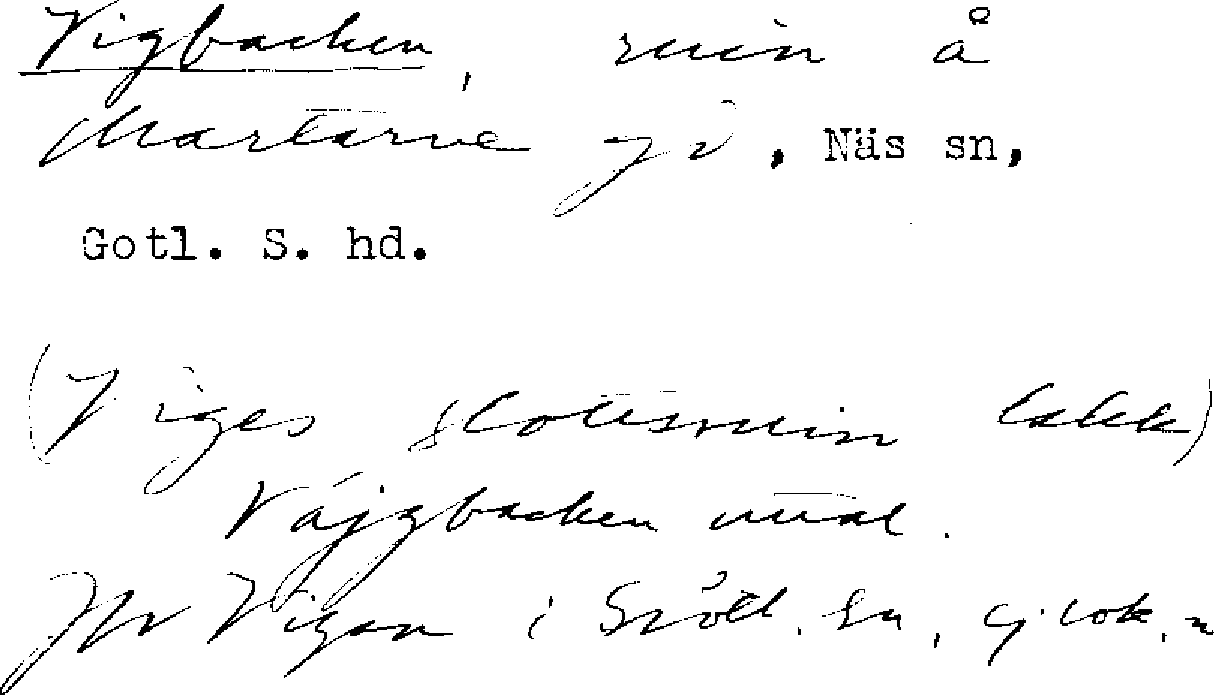 Vigbacken, ruin å
Martarve gd, Näs sn,
Gotl. S. hd.
(Viges slottsruin Ekk)
Väjgbacken uttal.
Jfr Vigan i Gröttl. sn, ej lok.